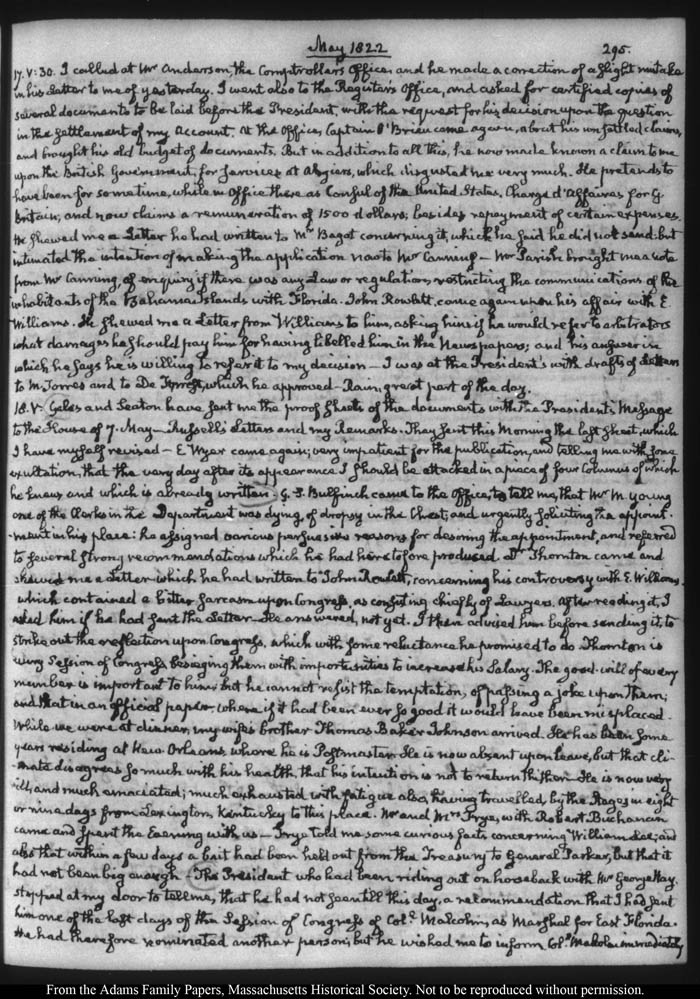 May 1822
295.
17. V:30. I called at Mr Anderson, the Comptroller's Office, and he made a correction of a slight mistake
in his Letter to me of yesterday. I went also to the Register's Office, and asked for certified copies of
several documents to be laid before the President, with the request for his decision upon the question
in the settlement of my Account. At the Office, Captain O'Brien came again, about his unsettled claims,
and brought his old budget of documents. But in addition to all this, he now made known a claim to me
upon the British Government, for services at Algiers, which disgusted me very much. He pretends to
have been for some time, while in Office there as Consul of the United States, Chargé d'Affaires for G.
Britain, and now claims a remuneration of 1500 dollars, besides repayment of certain expenses.
He shewed me a Letter he had written to Mr Bagot concerning it, which he said he did not send: but
intimated the intention of making the application now to Mr Canning — Mr Parish brought me a Note
from Mr Canning, of enquiry if there was any Law or regulation, restricting the communications of the
inhabitants of the Bahama Islands with Florida. John Rowlett, came again upon his affair with E.
Williams. He shewed me a Letter from Williams to him, asking him if he would refer to arbitrators
what damages he should pay him for having libelled him in the Newspapers; and his answer in
which he says he is willing to refer it to my decision — I was at the President's with drafts of Letters
to M. Torres and to De Forest, which he approved — Rain, great part of the day.
18. V: Gales and Seaton have sent me the proof sheets of the documents with the President's Message
to the House of 7. May — Russell's Letters and my Remarks. They sent this Morning the last sheet, which
I have myself revised — E Wyer came again, very impatient for the publication, and telling me with some
exultation, that the very day after its appearance I should be attacked in a piece of four Columns of which
he knew and which is already written. G. S. Bulfinch came to the Office, to tell me, that Mr M. Young
one of the Clerks in the Department was dying, of dropsy in the Chest, and urgently soliciting the appoint-
-ment in his place: he assigned various persuasive reasons for desiring the appointment, and referred
to several strong recommendations which he had heretofore produced. Dr Thornton came and
shewed me a Letter which he had written to John Rowlett, concerning his controversy with E. Williams
which contained a bitter sarcasm upon Congress, as consisting chiefly of Lawyers. After reading it, I
asked him if he had sent the Letter. He answered, not yet. I then advised him before sending it, to
strike out the reflection upon Congress, which with some reluctance he promised to do. Thornton is
every Session of Congress besieging them with importunities to increase his Salary. The good-will of every
member is important to him; but he cannot resist the temptation, of passing a joke upon them;
and that in an official paper, where if it had been ever so good it would have been misplaced.
While we were at dinner, my wife's brother Thomas Baker Johnson arrived. He has been some
years residing at New Orleans, where he is Postmaster. He is now absent upon leave, but that cli-
-mate disagrees so much with his health, that his intention is not to return thither. He is now very
ill, and much emaciated; much exhausted with fatigue also, having travelled, by the Stages in eight
or nine days from Lexington, Kentucky to this place. Mr and Mrs Frye, with Robert Buchanan
came and spent the Evening with us — Frye told me some curious facts concerning William Lee; and
also that within a few days a bait had been held out from the Treasury to General Parker, but that it
had not been big enough — The President who had been riding out on horseback with Mr George Hay,
stopped at my door to tell me, that he had not seen till this day, a recommendation that I had sent
him one of the last days of the Session of Congress of Coll. Malcolm, as Marshal for East Florida.
He had therefore nominated another person; but he wished me to inform Coll. Malcolm immediately
From the Adams Family Papers, Massachusetts Historical Society. Not to be reproduced without permission.